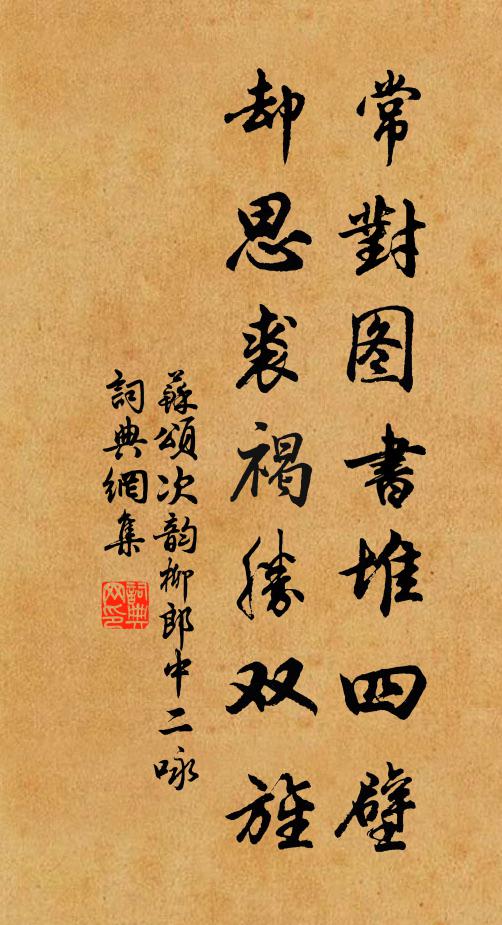 常對图書堆四壁
却思裘褐勝双旌
蘇頌次韵柳郎中二咏
詞典網集
詞典网印